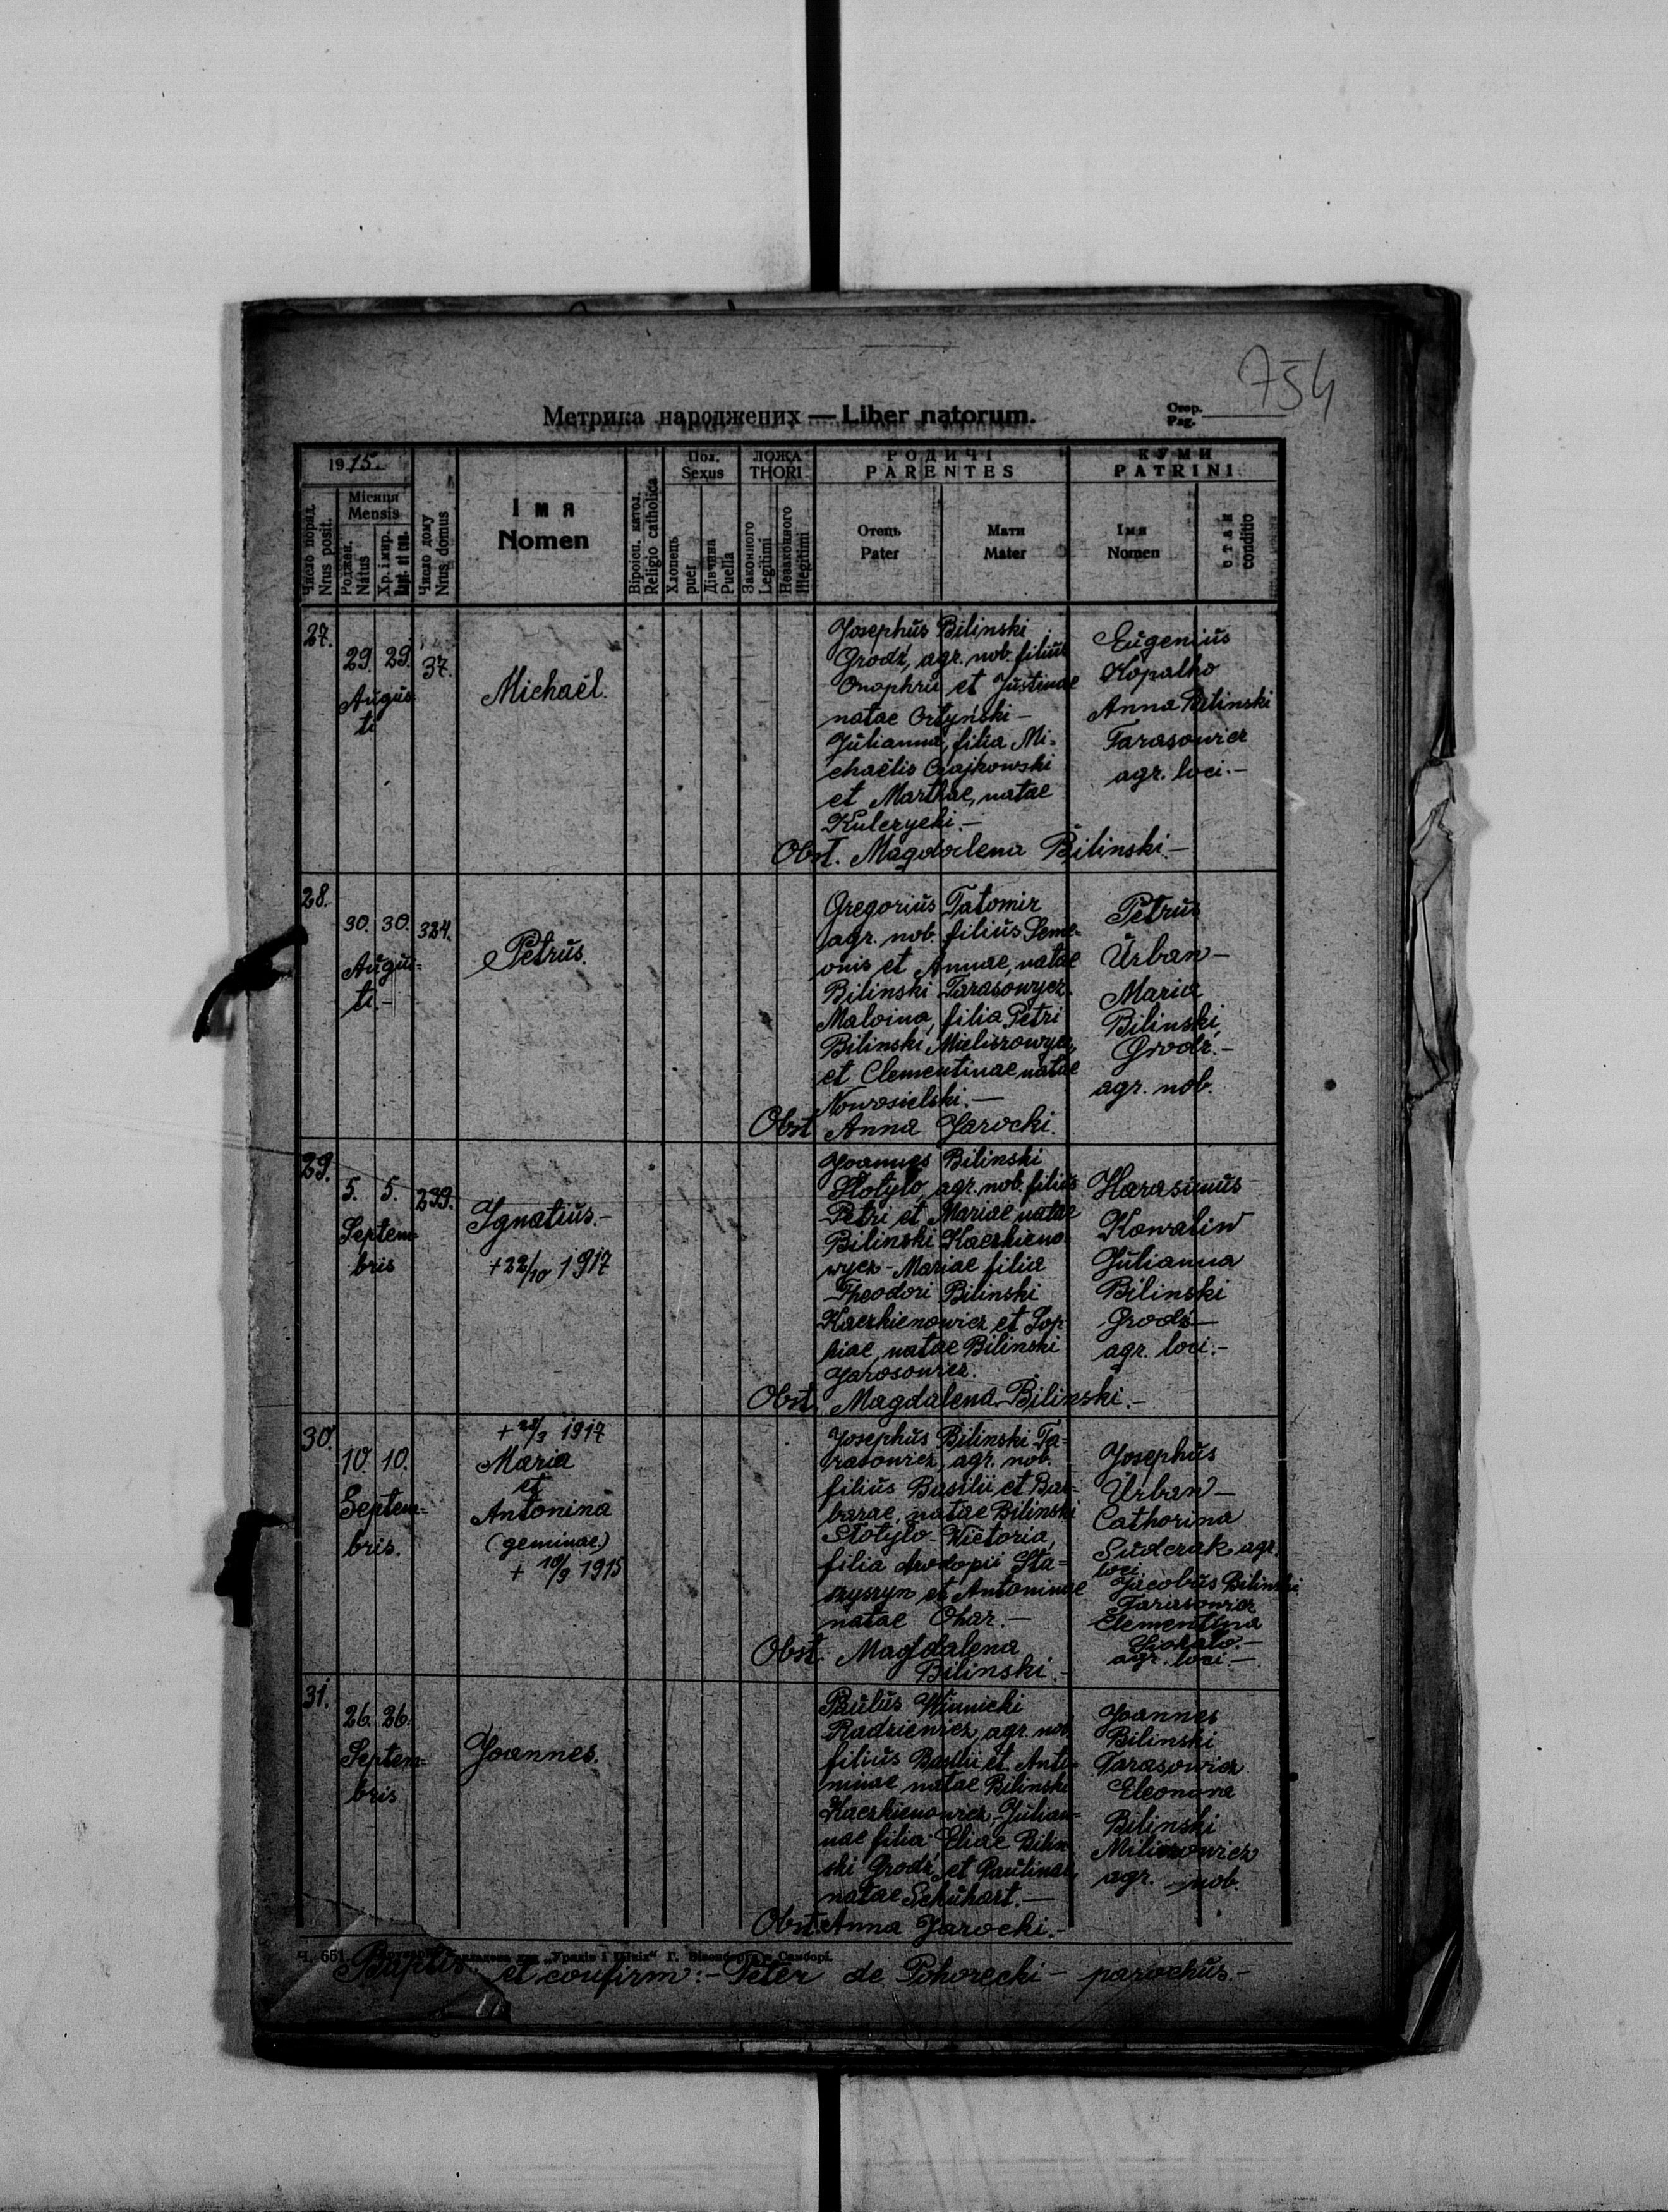 754
Метрика народжених — Liber natorum.
Стор.
Pag.
1915.
Число поряд.
Nrus posit.
Місяця
Mensis
Роджен.
Natus
Хр. і мир.
Число дому
Nrus domus
І м я
Nomen
Віроісп. катол.
Religio catholica
Пол.
Sexus
Хлопець
puer
Дівчина
Puella
ЛОЖА
THORI
Законного
Legitimi
Незаконного
Illegitimi
РОДИЧІ
PARENTES
Отець
Pater
Мати
Mater
КУМИ
PATRINI
Імя
Nomen
стан
conditio
27.
29. 29.
Augus
ti
37.
Michaël.
Josephus Bilinski
Grodź, agr. nob. filius
Onophrii et Justinae
natae Ortyński –
Julianna, filia Mi-
chaëlis Czajkowski
et Marthae, natae
Kulczycki. –
Obst. Magdalena Bilinski. –
Eugenius
Kopatko
Anna Bilinski
Tarasowicz
agr. loci. –
28.
30. 30.
Augus-
ti. –
334.
Petrus.
Gregorius Tatomir
agr. nob. filius Seme-
onis et Annae, natae
Bilinski Tarasowycz.
Malvina, filia Petri
Bilinski Mieliszowycz,
et Clementinae natae
Nowosielski. –
Obst. Anna Jarocki.
Petrus
Urban –
Maria
Bilinski,
Grodź. –
agr. nob.
29.
5. 5.
Septem-
bris
239.
Ignatius. –
+22/10 1917
Joannes Bilinski
Stotyło, agr. nob. filius
Petri et Mariae natae
Bilinski Kaczkieno
wycz – Mariae filia
Theodori Bilinski
Kaczkienowicz et Sop
hiae, natae Bilinski
Jarosowicz.
Obst. Magdalena Bilinski. –
Harasimus
Kowaliw
Julianna
Bilinski
Grodź –
agr. loci. –
30.
10. 10.
Septem-
bris.
+ 28/3 1917
Maria
et
Antonina
(geminae)
+ 10/9 1915
Josephus Bilinski Ta-
rasowicz, agr. nob.
filius Basilii et Bar-
barae, natae Bilinski
Stotyło – Wictoria,
filia Sta-
szyszyn et Antoninae
natae Ohar. –
Obst. Magdalena
Bilinski. –
Josephus
Urban –
Cathorina
Suderak agr.
loci.
Jacobus Bilinski
Tarasowicz
Clementina
agr. loci. –
31.
26. 26.
Septem-
bris
Joannes.
Paulus Winnicki
Radziewicz, agr. nob.
filius Basilii et Anto-
ninae natae Bilinski
Kaczkienowicz, Julian-
nae filia Eliae Bilin
ski Grodź, et Paulinae,
natae Schuhart. –
Obst. Anna Jarocki. –
Joannes
Bilinski
Tarasowicz
Eleonora
Bilinski
Miliszowicz
agr. – nob.
Ч. 651.
Г. Самборі.
Baptis. et confirm: – Peter de Pohorecki – parochus. –